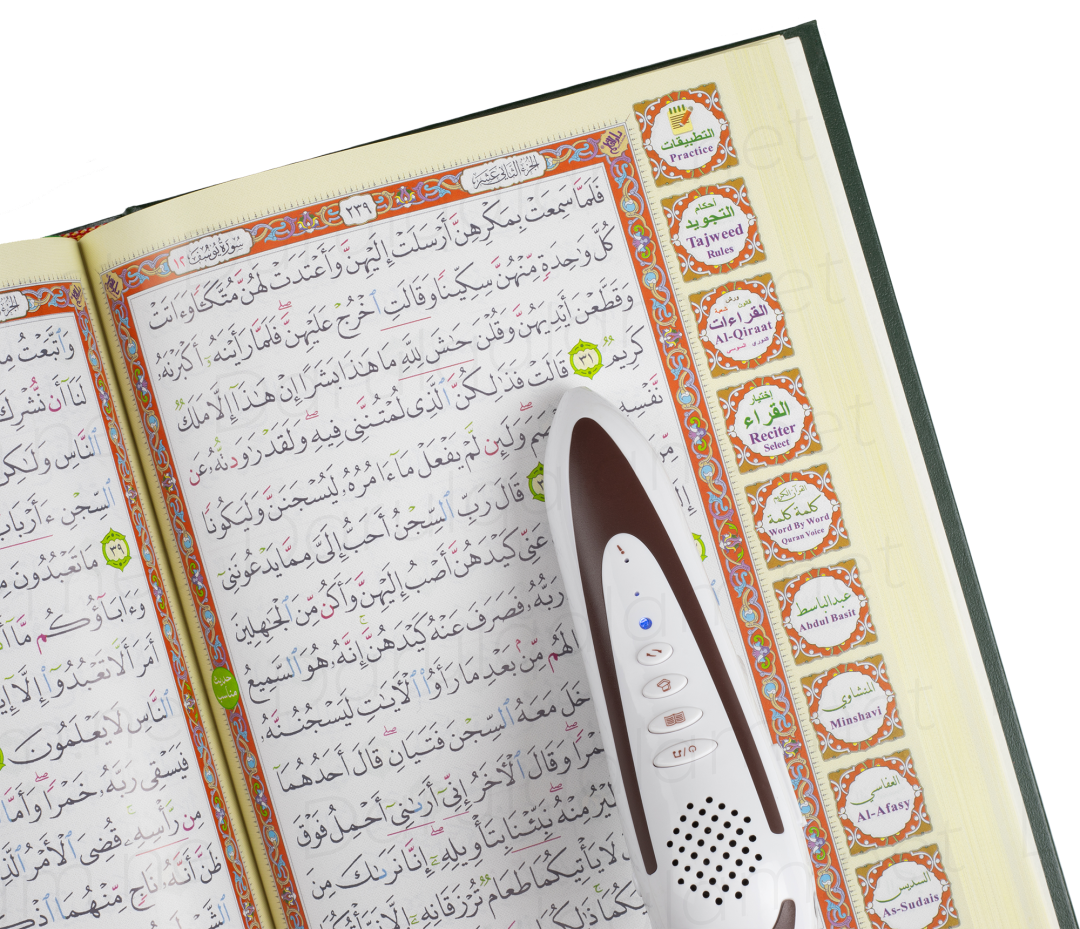 الجزء الثاني عشر
٢٣٩
سورة يوسف ١٢
فَلَمَّا سَمِعَتْ بِمَكْرِهِنَّ أَرْسَلَتْ إِلَيْهِنَّ وَأَعْتَدَتْ لَهُنَّ مُتَّكَـًٔا وَءَاتَتْ
كُلَّ وَٰحِدَةٍ مِّنْهُنَّ سِكِّينًا وَقَالَتِ ٱخْرُجْ عَلَيْهِنَّ فَلَمَّا رَأَيْنَهُۥٓ أَكْبَرْنَهُۥ
وَقَطَّعْنَ أَيْدِيَهُنَّ وَقُلْنَ حَٰشَ لِلَّهِ مَا هَٰذَا بَشَرًا إِنْ هَٰذَآ إِلَّا مَلَكٌ
كَرِيمٌ ٣١ قَالَتْ فَذَٰلِكُنَّ ٱلَّذِى لُمْتُنَّنِى فِيهِ وَلَقَدْ رَٰوَدتُّهُۥ عَن
نَّفْسِهِ وَلَئِن لَّمْ يَفْعَلْ مَآ ءَامُرُهُۥ لَيُسْجَنَنَّ وَلَيَكُونًا
مِّنَ قَالَ رَبِّ ٱلسِّجْنُ أَحَبُّ إِلَىَّ مِمَّا يَدْعُونَنِىٓ
إِلَ عَنِّى كَيْدَهُنَّ أَصْبُ إِلَيْهِنَّ وَأَكُن مِّنَ ٱلْجَٰهِلِينَ
رَبُّهُۥ فَصَرَفَ عَنْهُ كَيْدَهُنَّ إِنَّهُۥ هُوَ ٱلسَّمِيعُ
لَهُم مِّنۢ بَعْدِ مَا رَأَوُا۟ ٱلْءَايَٰتِ لَيَسْجُنُنَّهُۥ
خَلَ مَعَهُ ٱلسِّجْنَ فَتَيَانِ قَالَ أَحَدُهُمَآ
خَمْرًا وَقَالَ ٱلْءَاخَرُ إِنِّىٓ أَرَىٰنِىٓ أَحْمِلُ فَوْقَ
ٱلطَّيْرُ مِنْهُ نَبِّئْنَا بِتَأْوِيلِهِۦٓ إِنَّا نَرَىٰكَ مِنَ
لَا يَأْتِيكُمَا طَعَامٌ تُرْزَقَانِهِۦٓ إِلَّا نَبَّأْتُكُمَا
يَكُمَا ذَٰلِكُمَا
وَٱتَّبَعْتُ
لَنَآ أَن نُّشْرِكَ
ٱلنَّاسِ وَلَٰكِنَّ
ٱلسِّجْنِ ءَأَرْبَابٌ
٣٩ مَا تَعْبُدُونَ
وَءَابَآؤُكُم مَّآ
أَمَرَ أَلَّا تَعْبُدُوٓا۟ إِلَّآ
ٱلنَّاسِ لَا يَعْلَمُونَ
فَيَسْقِى رَبَّهُۥ خَمْرًا وَأَمَّا
مِن رَّأْسِهِۦ قُضِىَ ٱلْأَمْرُ ٱلَّذِى
ظَنَّ أَنَّهُۥ نَاجٍ مِّنْهُمَا
التطبيقات
Practice
أحكام
التجويد
Tajweed
Rules
ورش
قالون شعبة
القراءات
Al-Qiraat
الدوري السوسي
إختيار
القراء
Reciter
Select
القرآن الكريم
كلمة كلمة
Word By Word
Quran Voice
عبدالباسط
Abdul Basit
المنشاوي
Minshavi
العفاسي
Al-Afasy
السديس
As-Sudais